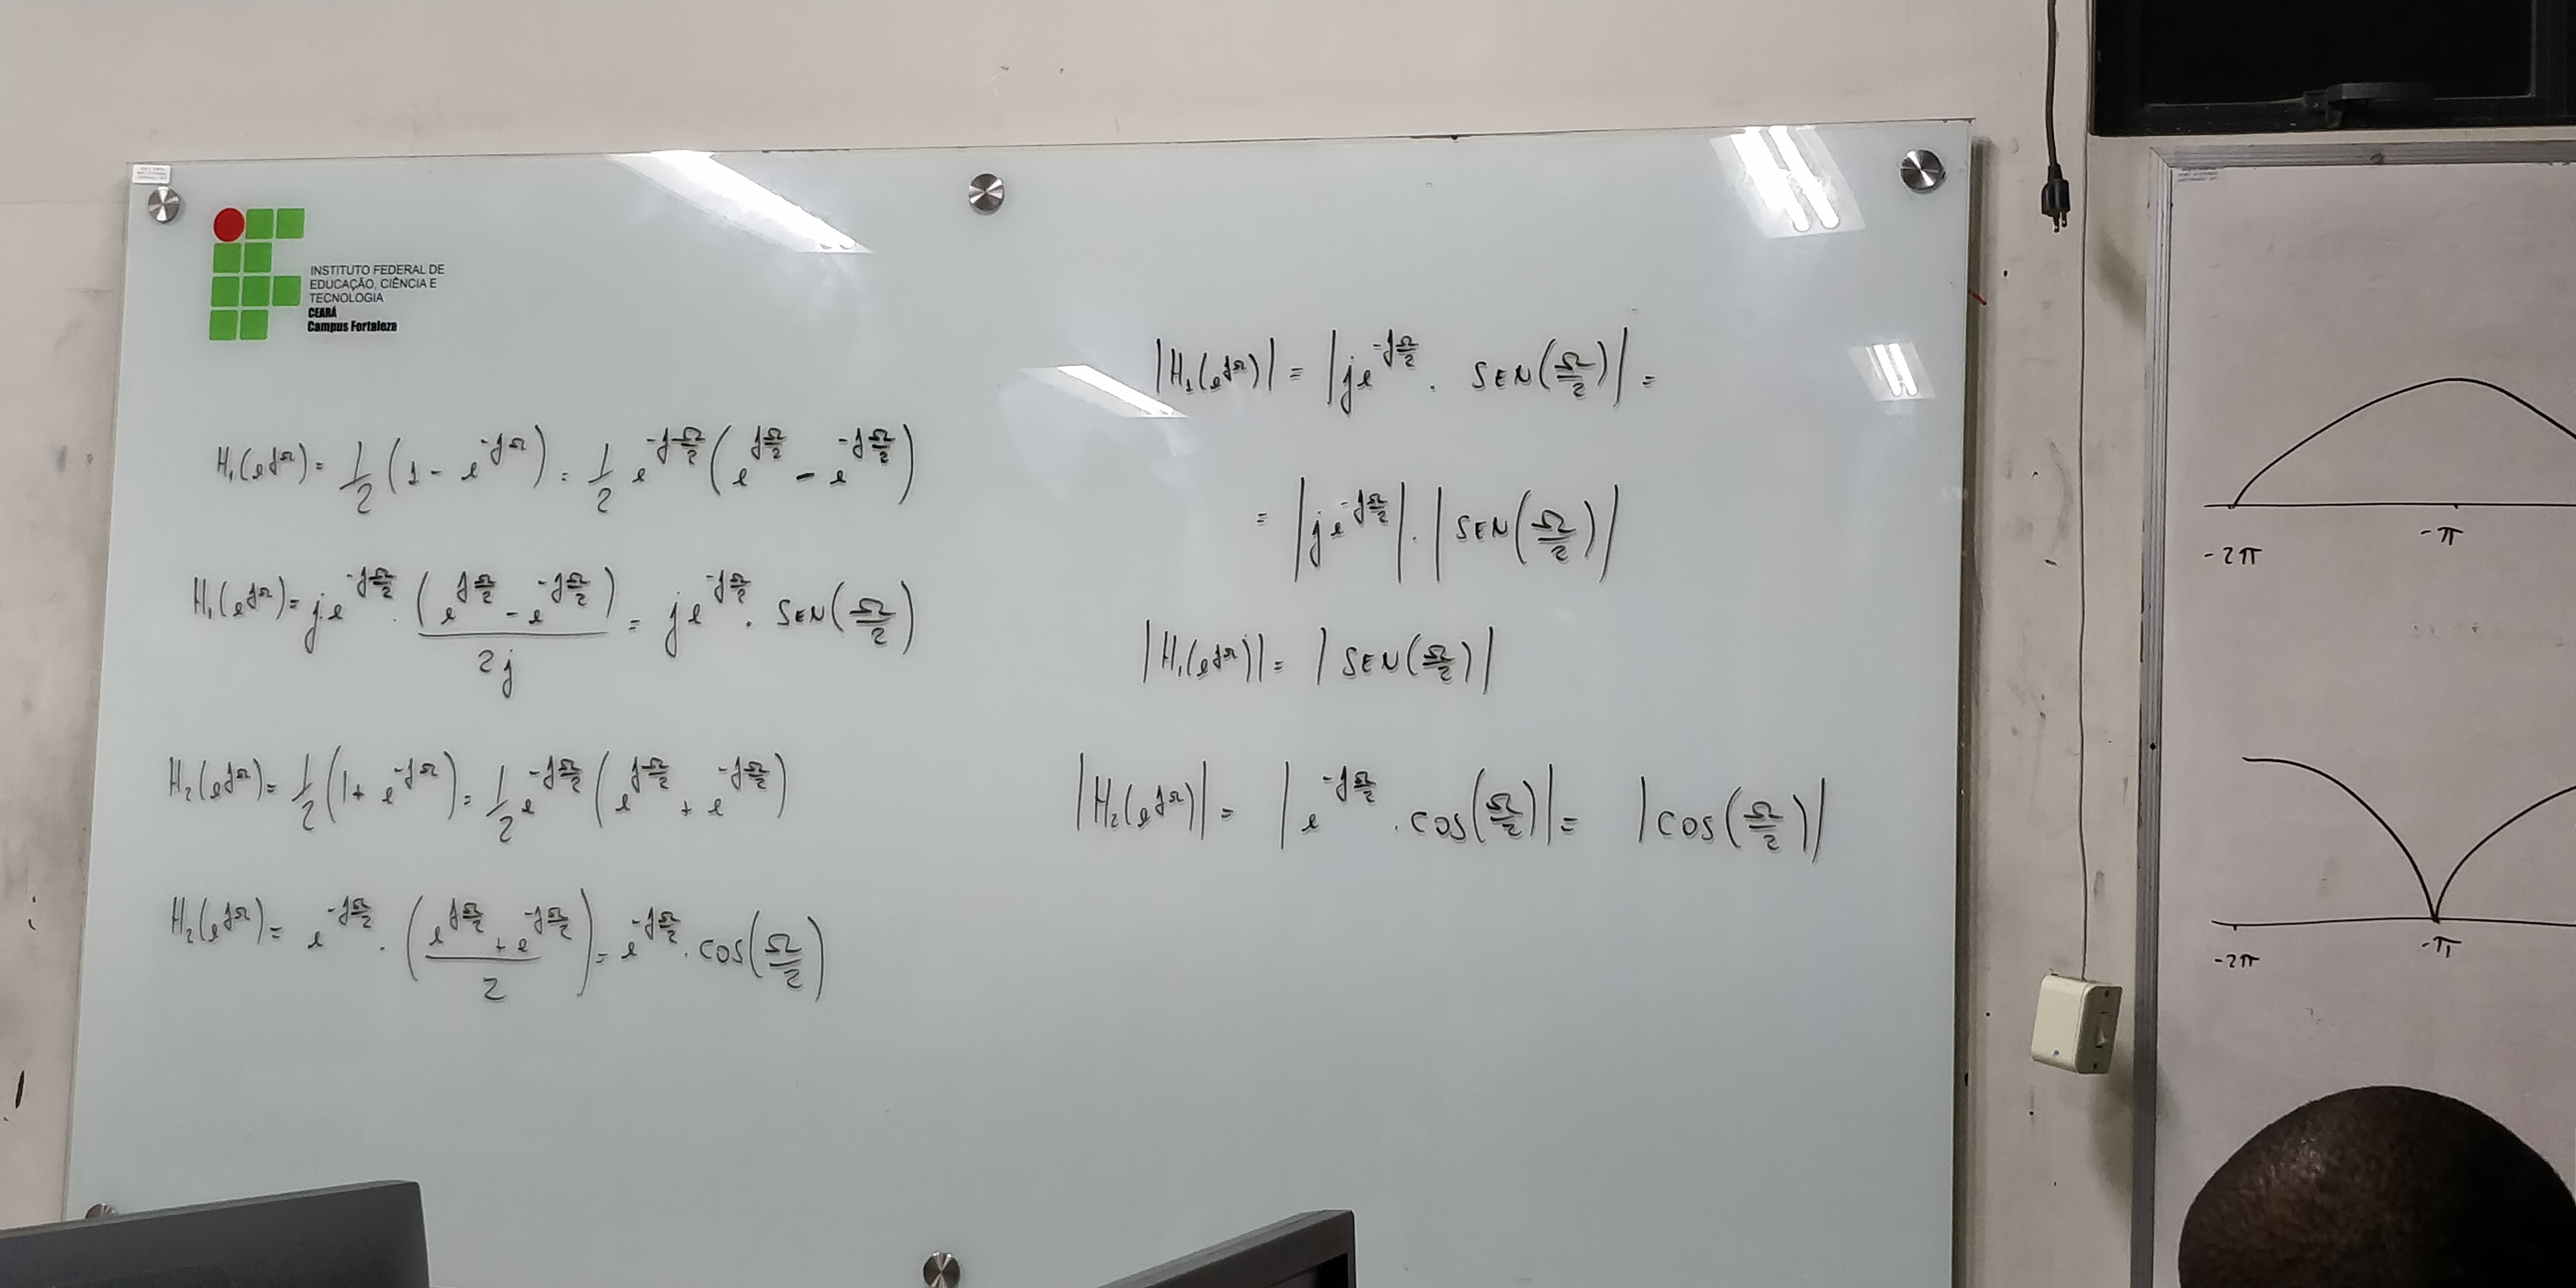 INSTITUTO FEDERAL DE
EDUCAÇÃO, CIÊNCIA E
TECNOLOGIA
CEARÁ
Campus Fortaleza
H₁(e^{jΩ}) = 1/2 (1 - e^{-jΩ}) = 1/2 e^{-jΩ/2} (e^{jΩ/2} - e^{-jΩ/2})
H₁(e^{jΩ}) = je^{-jΩ/2} . (e^{jΩ/2} - e^{-jΩ/2})/2j = je^{-jΩ/2} . SEN(Ω/2)
H₂(e^{jΩ}) = 1/2 (1 + e^{-jΩ}) = 1/2 e^{-jΩ/2} (e^{jΩ/2} + e^{-jΩ/2})
H₂(e^{jΩ}) = e^{-jΩ/2} . ((e^{jΩ/2} + e^{-jΩ/2})/2) = e^{-jΩ/2} . COS(Ω/2)
|H₁(e^{jΩ})| = |je^{-jΩ/2} . SEN(Ω/2)| =
= |je^{-jΩ/2}| . |SEN(Ω/2)|
|H₁(e^{jΩ})| = |SEN(Ω/2)|
|H₂(e^{jΩ})| = |e^{-jΩ/2} . COS(Ω/2)| = |COS(Ω/2)|
-2π -π
-2π -π